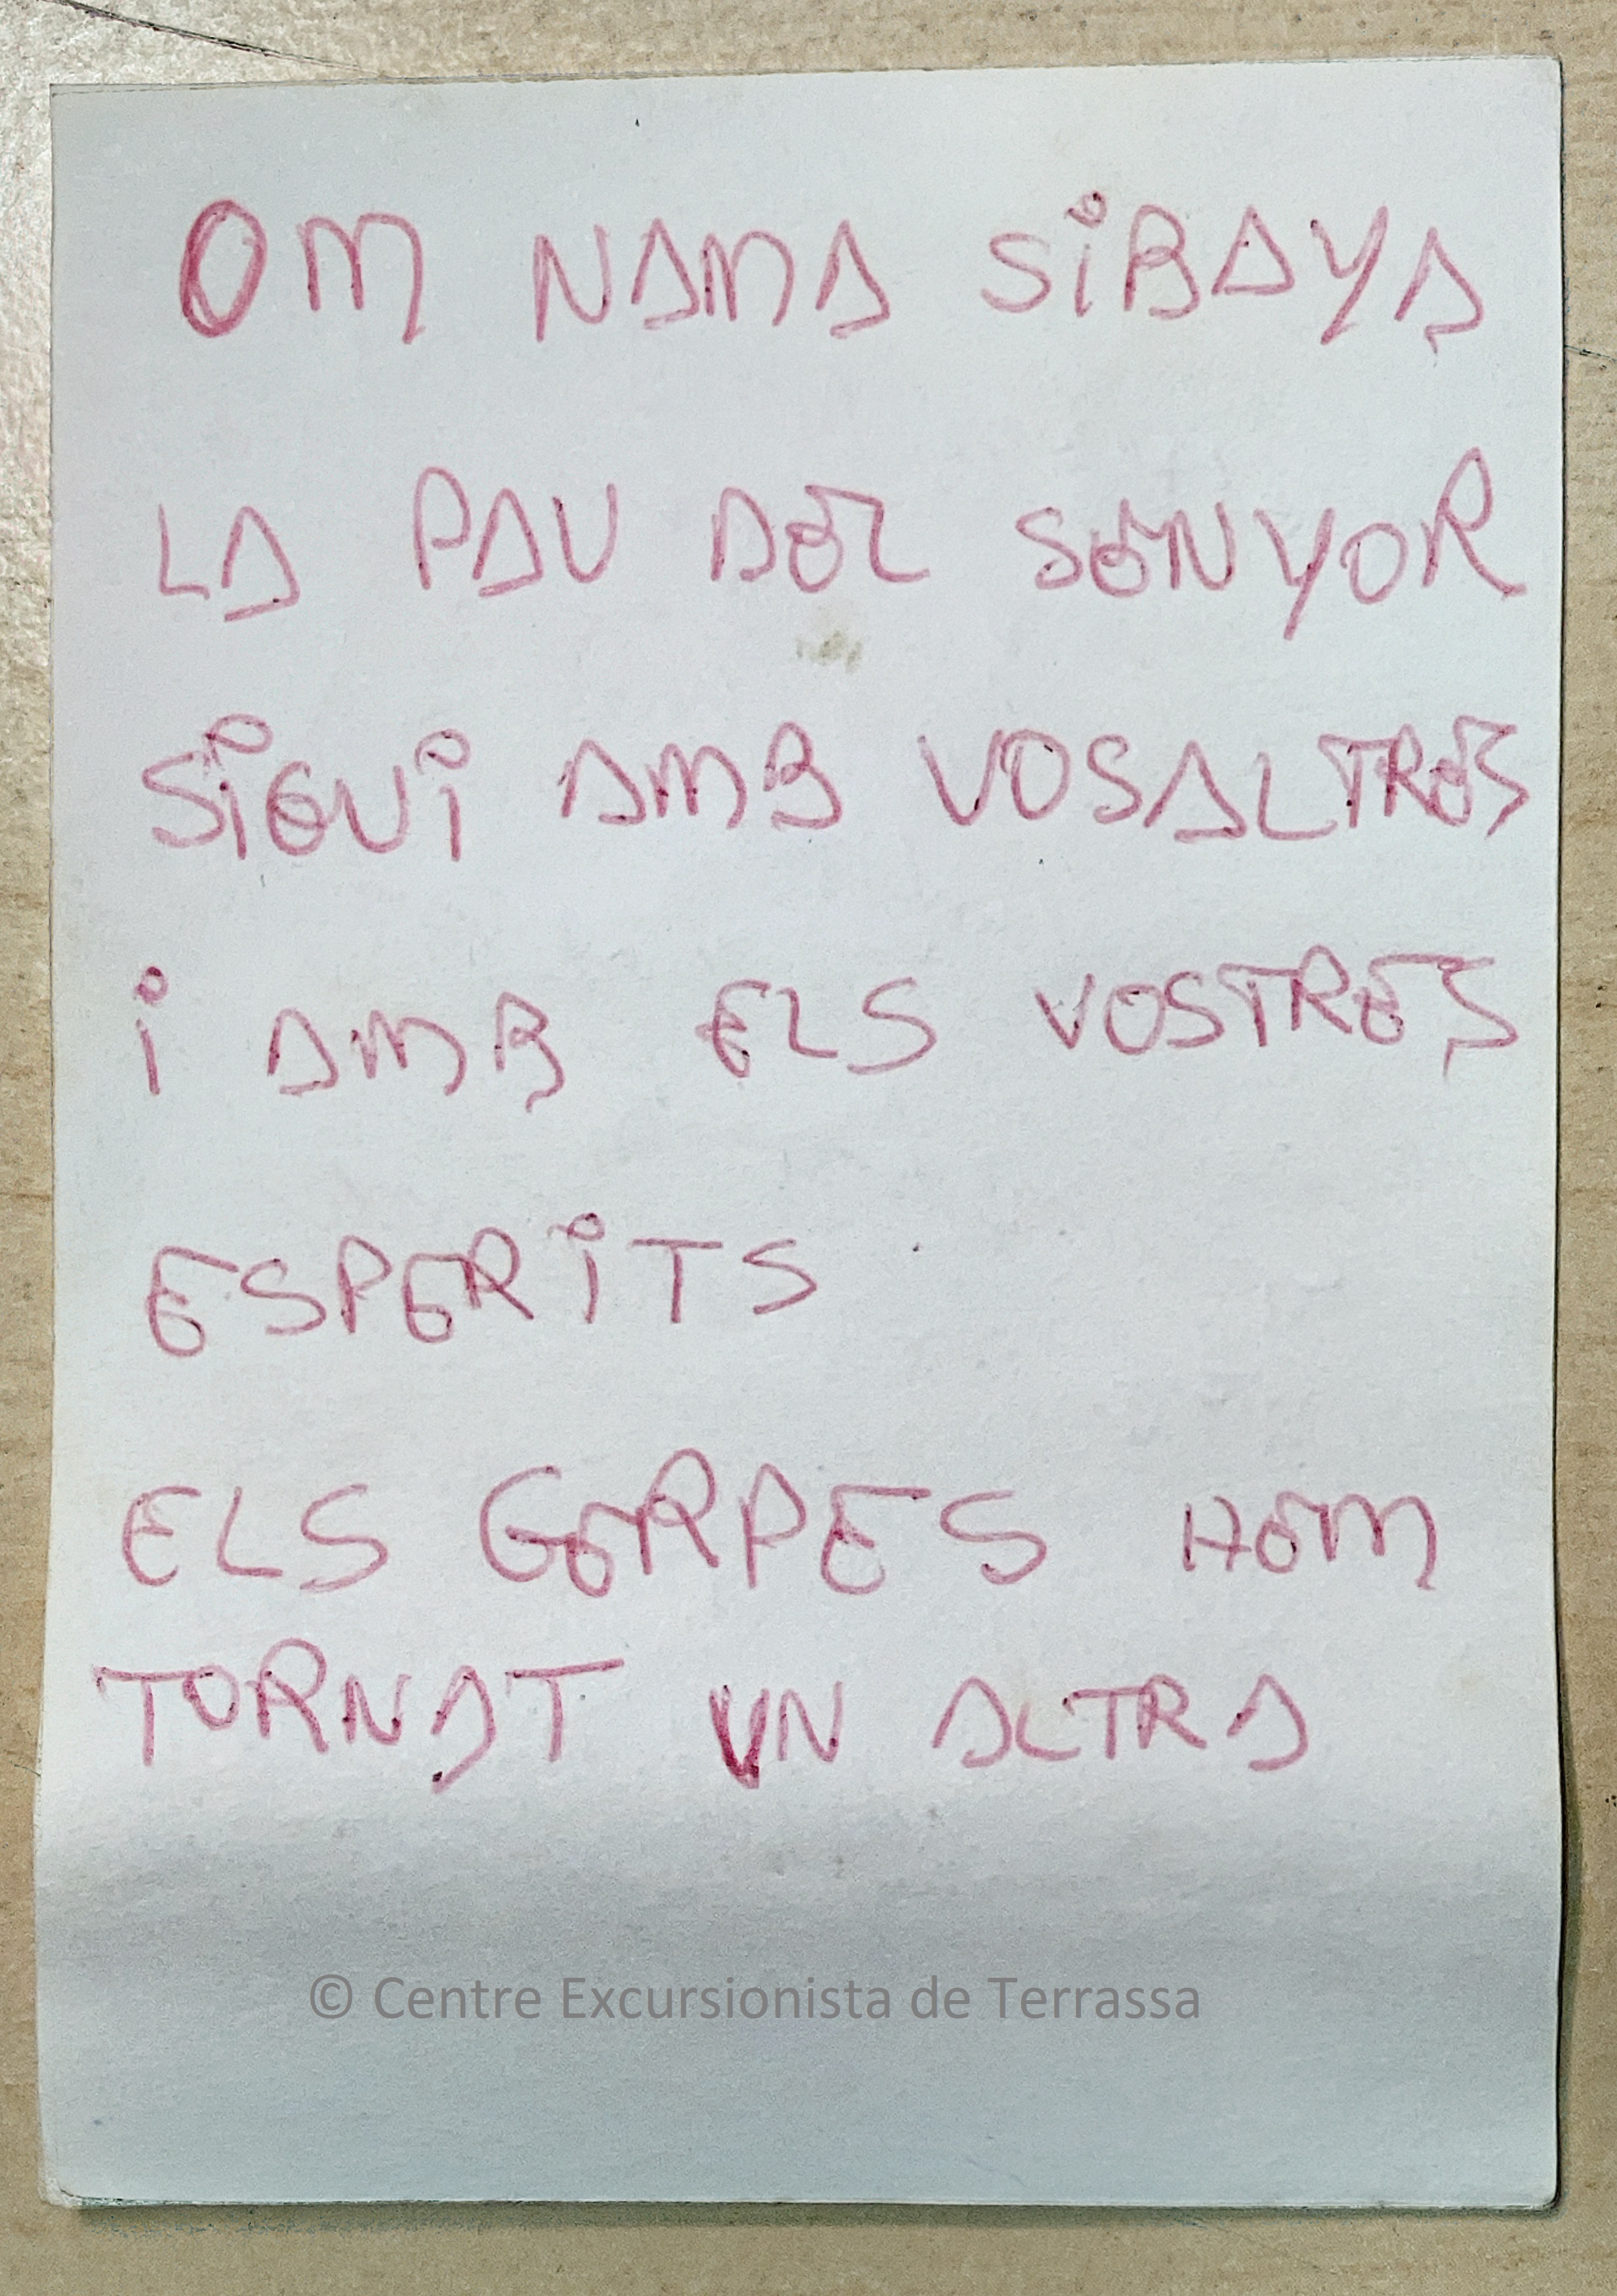 OM NAMA SiBAYA
LA PAU DEL SENYOR
SiGUi AMB VOSALTRES
i AMB ELS VOSTRES
ESPERiTS
ELS GERPES HEM
TORNAT UN ALTRA
© Centre Excursionista de Terrassa